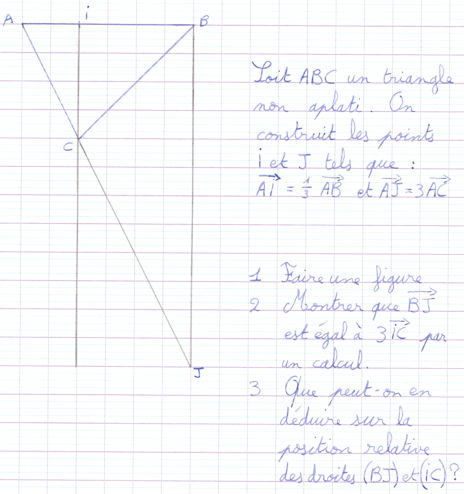 A i B
C
J
Soit ABC un triangle
non aplati. On
construit les points
i et J tels que :
$\overrightarrow{Ai} = \frac{1}{3} \overrightarrow{AB}$ et $\overrightarrow{AJ} = 3\overrightarrow{AC}$
1 Faire une figure
2 Montrer que $\overrightarrow{BJ}$
est égal à $3\overrightarrow{iC}$ par
un calcul.
3 Que peut-on en
déduire sur la
position relative
des droites (BJ) et (iC) ?